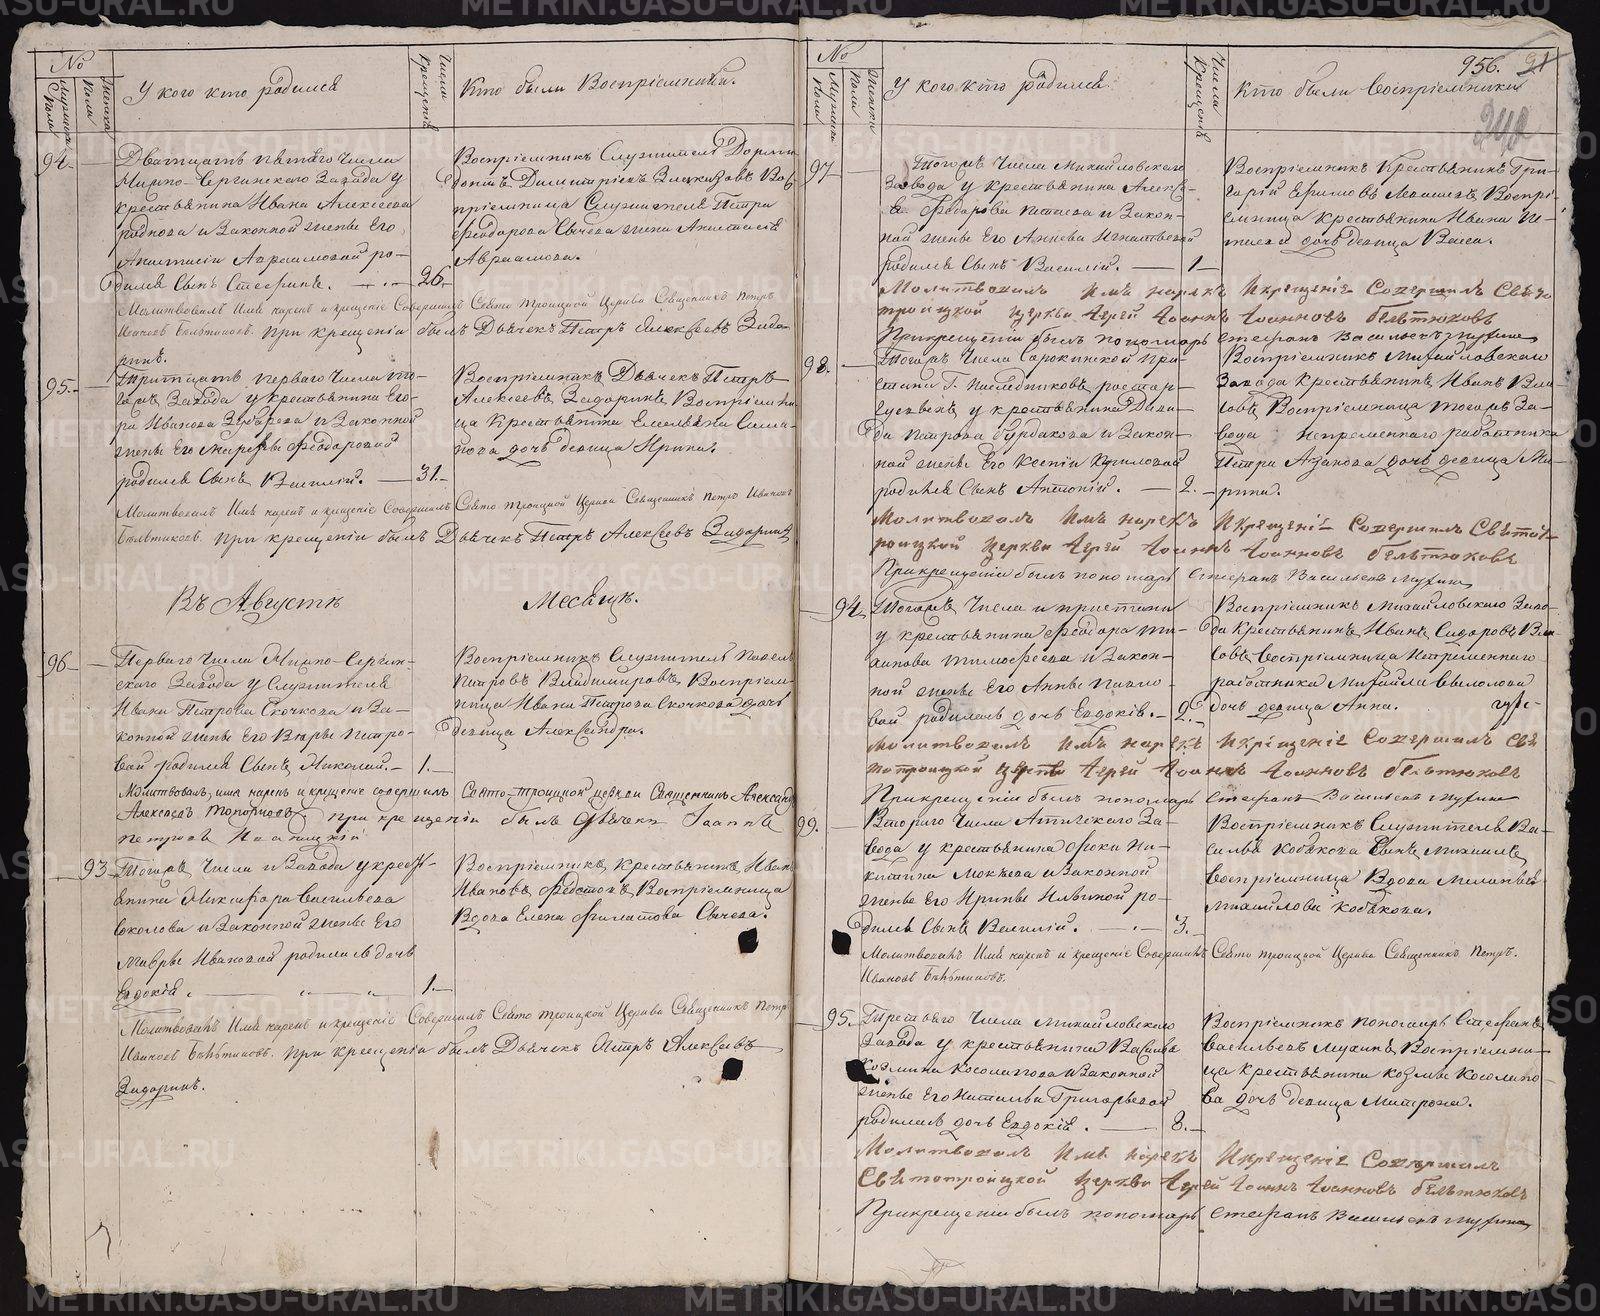 №
Мужеска Пола
Женска Пола
У кого кто родился
Числа Крещенія
Кто были Воспріемники.
94.
Дватцать пятаго Числа
Нижно-Сергинскаго Завода у
крестьянина Ивана Алексеева
и Законной жены Его
Анастасіи Авраамовой ро-
дился Сынъ Стефанъ. 26.
Воспріемникъ Служитель
Димитріевъ Вос
пріемница Служителя Петра
Феодорова Сычева жена Анастасія
Авраамова.
Молитвовалъ Имя нарекъ и крещеніе Совершилъ Свято Троицкой Церкви Священникъ Петръ
Ивановъ Бѣльтюковъ. При крещеніи былъ Дьячекъ Петръ Алексѣевъ Зада
ринъ.
95.
Тритцать перваго Числа то-
гожъ Завода у крестьянина Его-
ра Иванова и Законной
жены Его Марфы Феодоровой
родился Сынъ Василій. 31.
Воспріемникъ Дьячекъ Петръ
Алексеевъ Задоринъ Воспріемни-
ца Крестьянина Емельяна
дочь девица Ирина.
Молитвовалъ Имя нарекъ и крещеніе Совершилъ Свято Троицкой Церкви Священникъ Петръ Ивановъ
Бѣльтюковъ. При крещеніи былъ Дьячекъ Петръ Алексѣевъ Задоринъ
Въ Августѣ Месяцѣ.
96
Перваго Числа Нижно-Сергин-
скаго Завода у Служителя
Ивана Петрова Скочкова и За-
конной жены Его Вѣры Петро-
вой родился Сынъ Николай. 1.
Воспріемникъ Служитель Павелъ
Петровъ Владимировъ, Воспріем-
ница Ивана Петрова Скочкова дочь
девица Александра.
Молитвовалъ, имя нарекъ и крещеніе совершилъ Свято-троицкой церкви Священникъ Александръ
Алексѣевъ Топорковъ При крещеніи былъ Дьячекъ Іоаннъ
Петровъ
93
Тогожъ Числа и Завода у кресть-
янина Никифора Васильева
Соколова и Законной жены Его
Мавры Ивановой родилась дочь
Евдокія. 1.
Воспріемникъ, Крестьянинъ Иванъ
Ивановъ Воспріемница
Вдова Елена Филатова Сычева.
Молитвовалъ Имя нарекъ и крещеніе Совершилъ Свято Троицкой Церкви Священникъ Петръ
Ивановъ Бѣльтюковъ. При крещеніи былъ Дьячекъ Петръ Алексѣевъ
Задоринъ.
956. 91
№
Мужеска Пола
Женска Пола
У кого кто родился
Числа Крещенія
Кто были Воспріемники
97
Тогожъ Числа Михайловскаго
Завода у крестьянина Алексѣ-
я Феодорова и Закон-
ной жены Его Анны Игнатьевой
родился Сынъ Василій. 1
Воспріемникъ Крестьянинъ Гри-
горій Ермолаевъ Воспрі-
емница крестьянина Ивана
дочь девица Васса.
Молитвовалъ Имя нарекъ Икрещеніе Совершилъ Свято
троицкой церкви Іерей Іоаннъ Іоанновъ Бѣльтюковъ
Прикрещеніи былъ пономарь Стефанъ Васильевъ Мухинъ
98.
Тогожъ Числа Сорокинской При-
стани Г. наследниковъ
у крестьянина Дави-
да Петрова Бурдакова и Закон-
ной жены Его Ксеніи Кириловой
родился Сынъ Антоній. 2.
Воспріемникъ Михайловскаго
Завода Крестьянинъ Иванъ Вла-
совъ Воспріемница тогожъ За-
вода непременнаго работника
Петра Азанова дочь девица Ма-
рина.
Молитвовалъ Имя нарекъ Икрещеніе Совершилъ Свято
троицкой церкви Іерей Іоаннъ Іоанновъ Бѣльтюковъ
Прикрещеніи былъ пономарь Стефанъ Васильевъ Мухинъ
94.
Тогожъ Числа и пристани
у крестьянина Феодора
Тимофеева и Закон-
ной жены Его Анны Павло-
вой родилась дочь Евдокія. 2.
Воспріемникъ Михайловскаго Заво-
да Крестьянинъ Иванъ Сидоровъ Вла
совъ Воспріемница Непременнаго
работника Михайла
дочь девица Анна.
Молитвовалъ Имя нарекъ Икрещеніе Совершилъ Свя
тотроицкой церкви Іерей Іоаннъ Іоанновъ Бѣльтюковъ
Прикрещеніи былъ пономарь Стефанъ Васильевъ Мухинъ
99.
Втораго Числа Атигскаго За-
вода у крестьянина Фоки Ни-
китина Мокѣева и Законной
жены Его Ирины Ильиной ро-
дился Сынъ Василій. 3.
Воспріемникъ Служителя Ва-
силья Кобякова Сынъ Михаилъ,
Воспріемница Вдова Меланья
Михайлова Кобякова.
Молитвовалъ Имя нарекъ и крещеніе Совершилъ Свято Троицкой Церкви Священникъ Петръ.
Ивановъ Бѣльтюковъ.
95.
Третьяго Числа Михайловскаго
Завода у крестьянина Василья
Козмина Косолапова и Законной
жены Его Натальи Григорьевой
родилась дочь Евдокія. 8.
Воспріемникъ пономарь Стефанъ
Васильевъ Мухинъ, Воспріемни-
ца крестьянина Козмы Косолапо-
ва дочь девица Матрона.
Молитвовалъ Имя нарекъ Икрещеніе Совершилъ
Святотроицкой церкви Іерей Іоаннъ Іоанновъ Бѣльтюковъ
Прикрещеніи былъ пономарь Стефанъ Васильевъ Мухинъ
METRIKI.GASO-URAL.RU